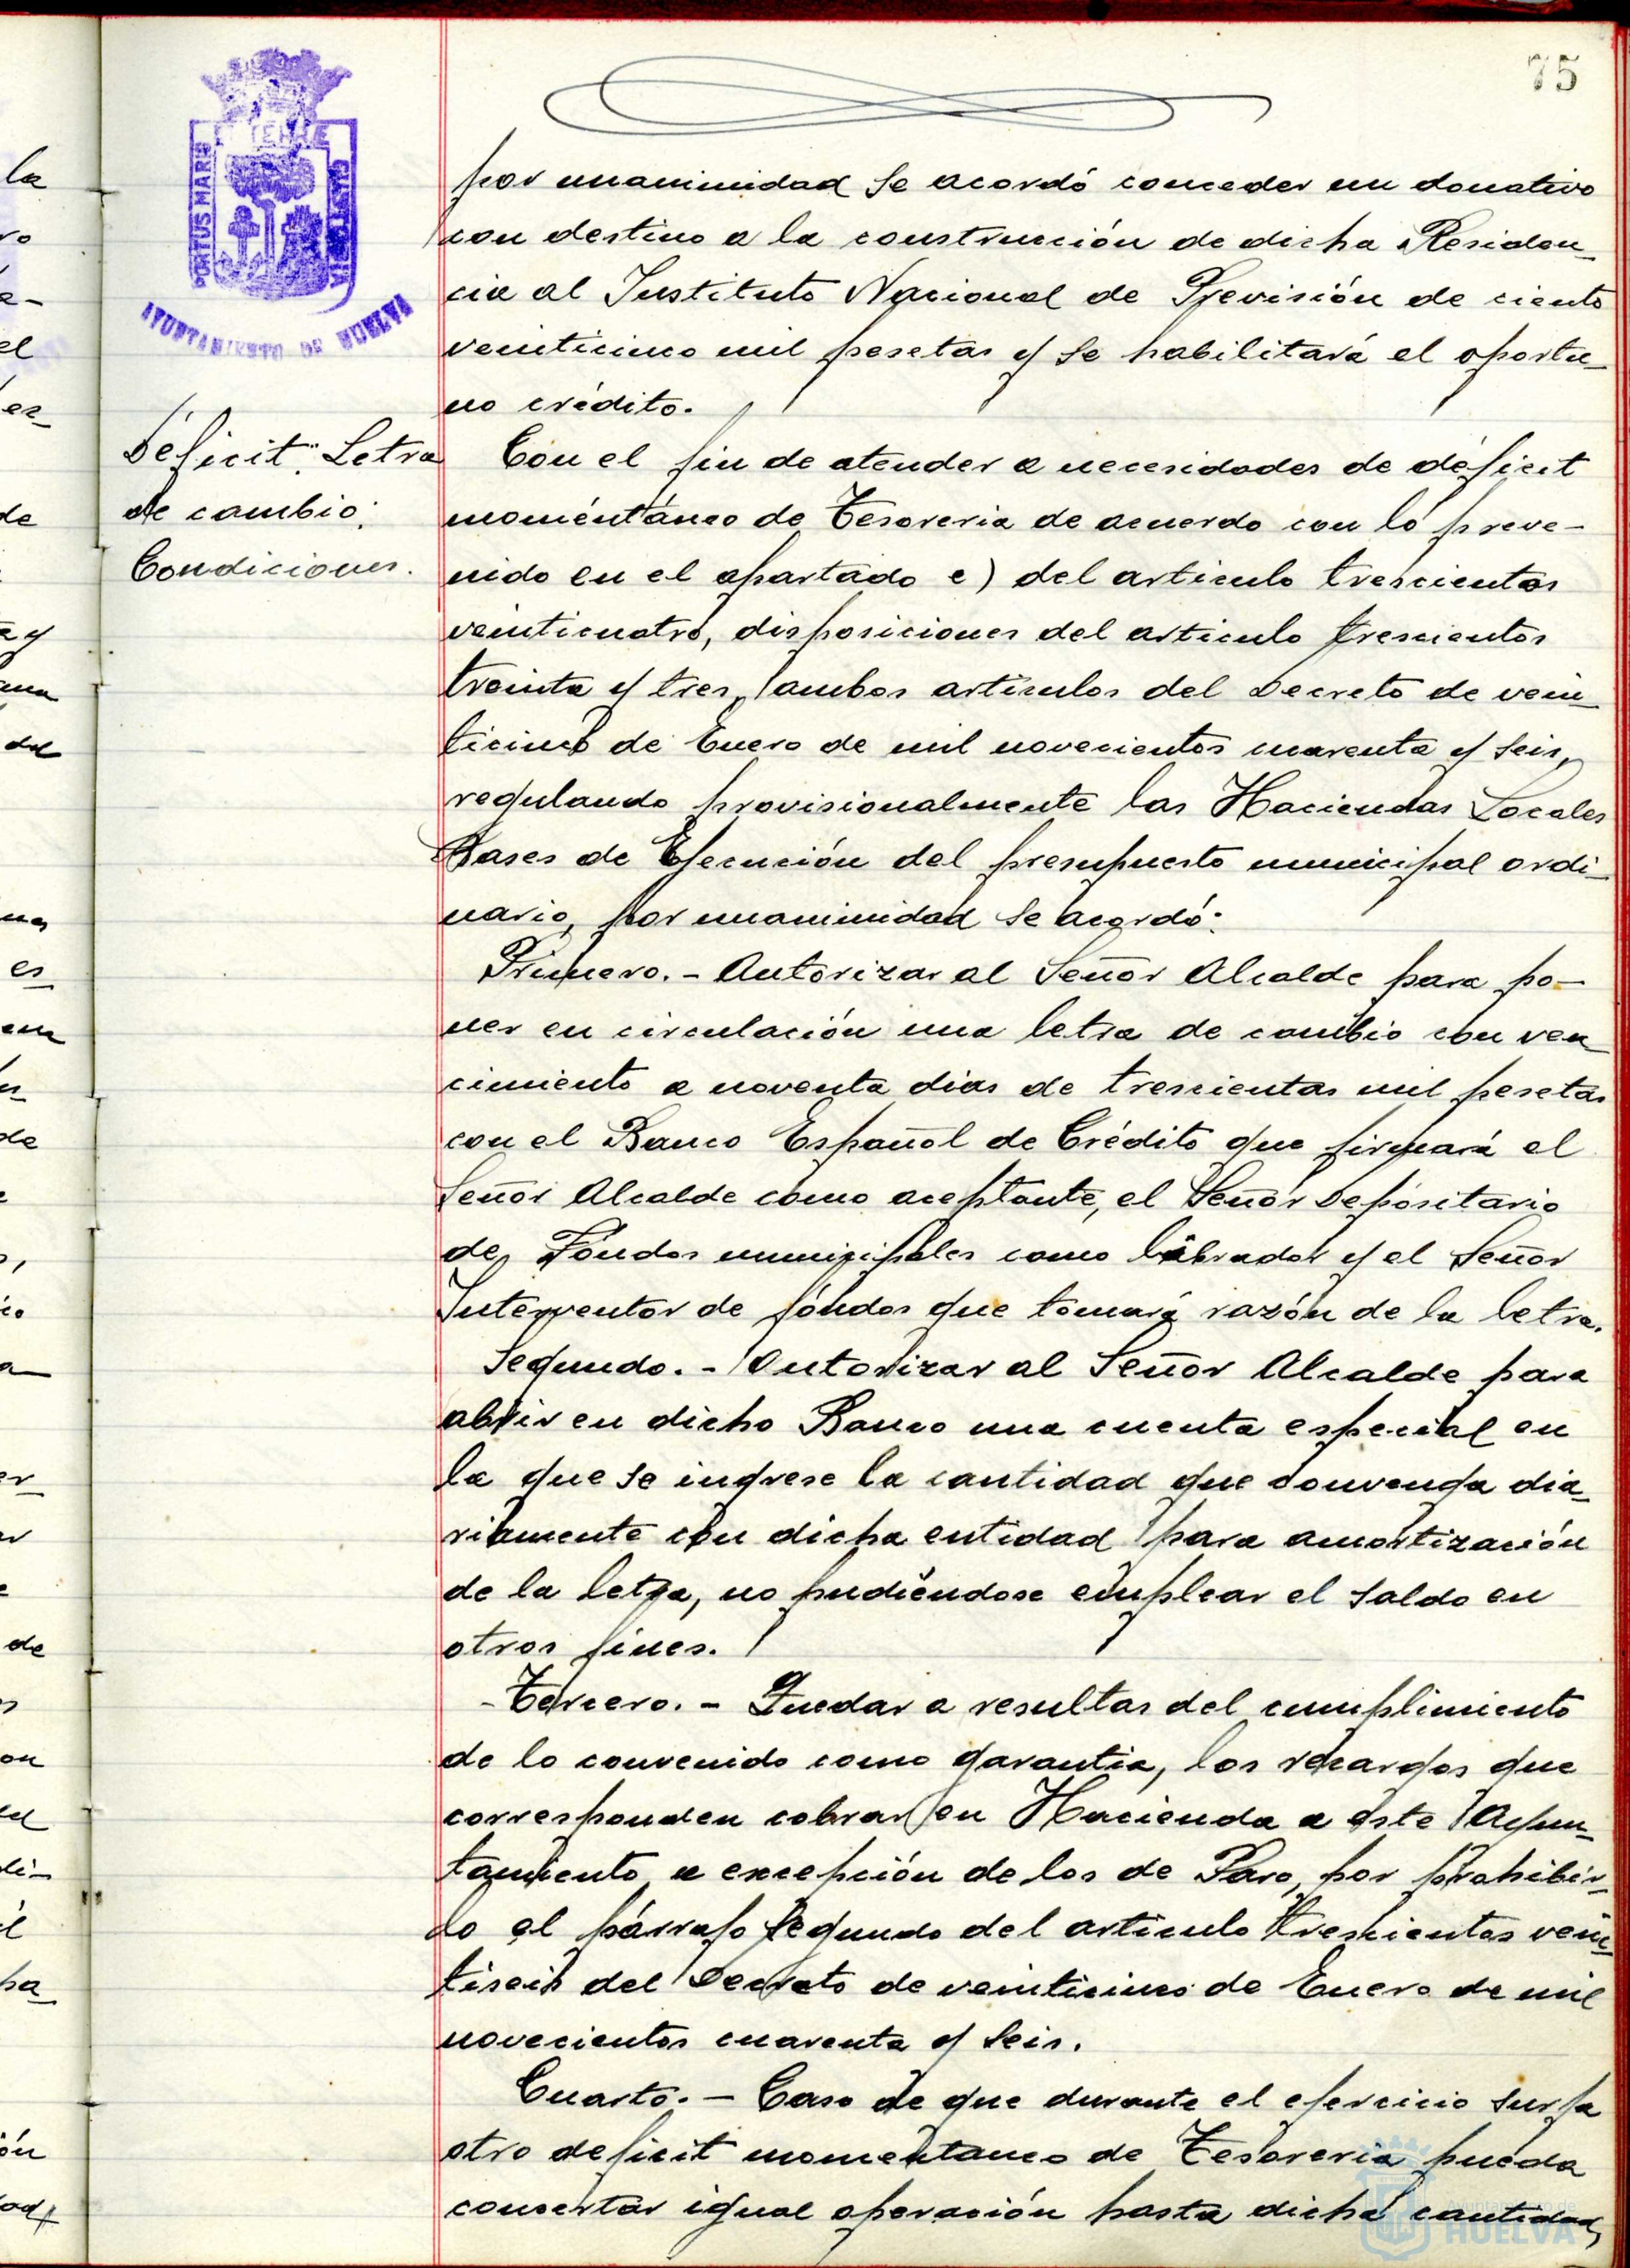 75
PORTUS MARIS
AYUNTAMIENTO DE HUELVA
por unanimidad se acordó conceder un donativo
con destino a la construcción de dicha Residen-
cia al Instituto Nacional de Previsión de ciento
veinticinco mil pesetas y se habilitará el oportu-
no crédito.
Déficit: Letra
de cambio:
Condiciones.
Con el fin de atender a necesidades de déficit
momentáneo de Tesoreria de acuerdo con lo preve-
nido en el apartado e) del articulo trescientos
veinticuatro, disposiciones del articulo trescientos
treinta y tres, ambos artículos del Decreto de vein-
ticinco de Enero de mil novecientos cuarenta y seis,
regulando provisionalmente las Haciendas Locales
Bases de Ejecución del presupuesto municipal ordi-
nario, por unanimidad se acordó:
Primero.- Autorizar al Señor Alcalde para po-
ner en circulación una letra de cambio con ven-
cimiento a noventa dias de trescientas mil pesetas
con el Banco Español de Crédito que firmará el
Señor Alcalde como aceptante, el Señor Depositario
de Fondos municipales como librador y el Señor
Interventor de fondos que tomará razón de la letra.
Segundo.- Autorizar al Señor Alcalde para
abrir en dicho Banco una cuenta especial en
la que se ingrese la cantidad que convenga dia-
riamente con dicha entidad para amortización
de la letra, no pudiéndose emplear el saldo en
otros fines.
- Tercero.- Quedar a resultas del cumplimiento
de lo convenido como garantia, los recargos que
corresponden cobrar en Hacienda a este Ayun-
tamiento a excepción de los de Paro, por prohibir-
lo el párrafo segundo del articulo trescientos vein-
tiseis del Decreto de veinticinco de Enero de mil
novecientos cuarenta y seis.
Cuarto.- Caso de que durante el ejercicio surja
otro deficit momentaneo de Tesoreria pueda
concertar igual operación hasta dicha cantidad,
Ayuntamiento de
HUELVA